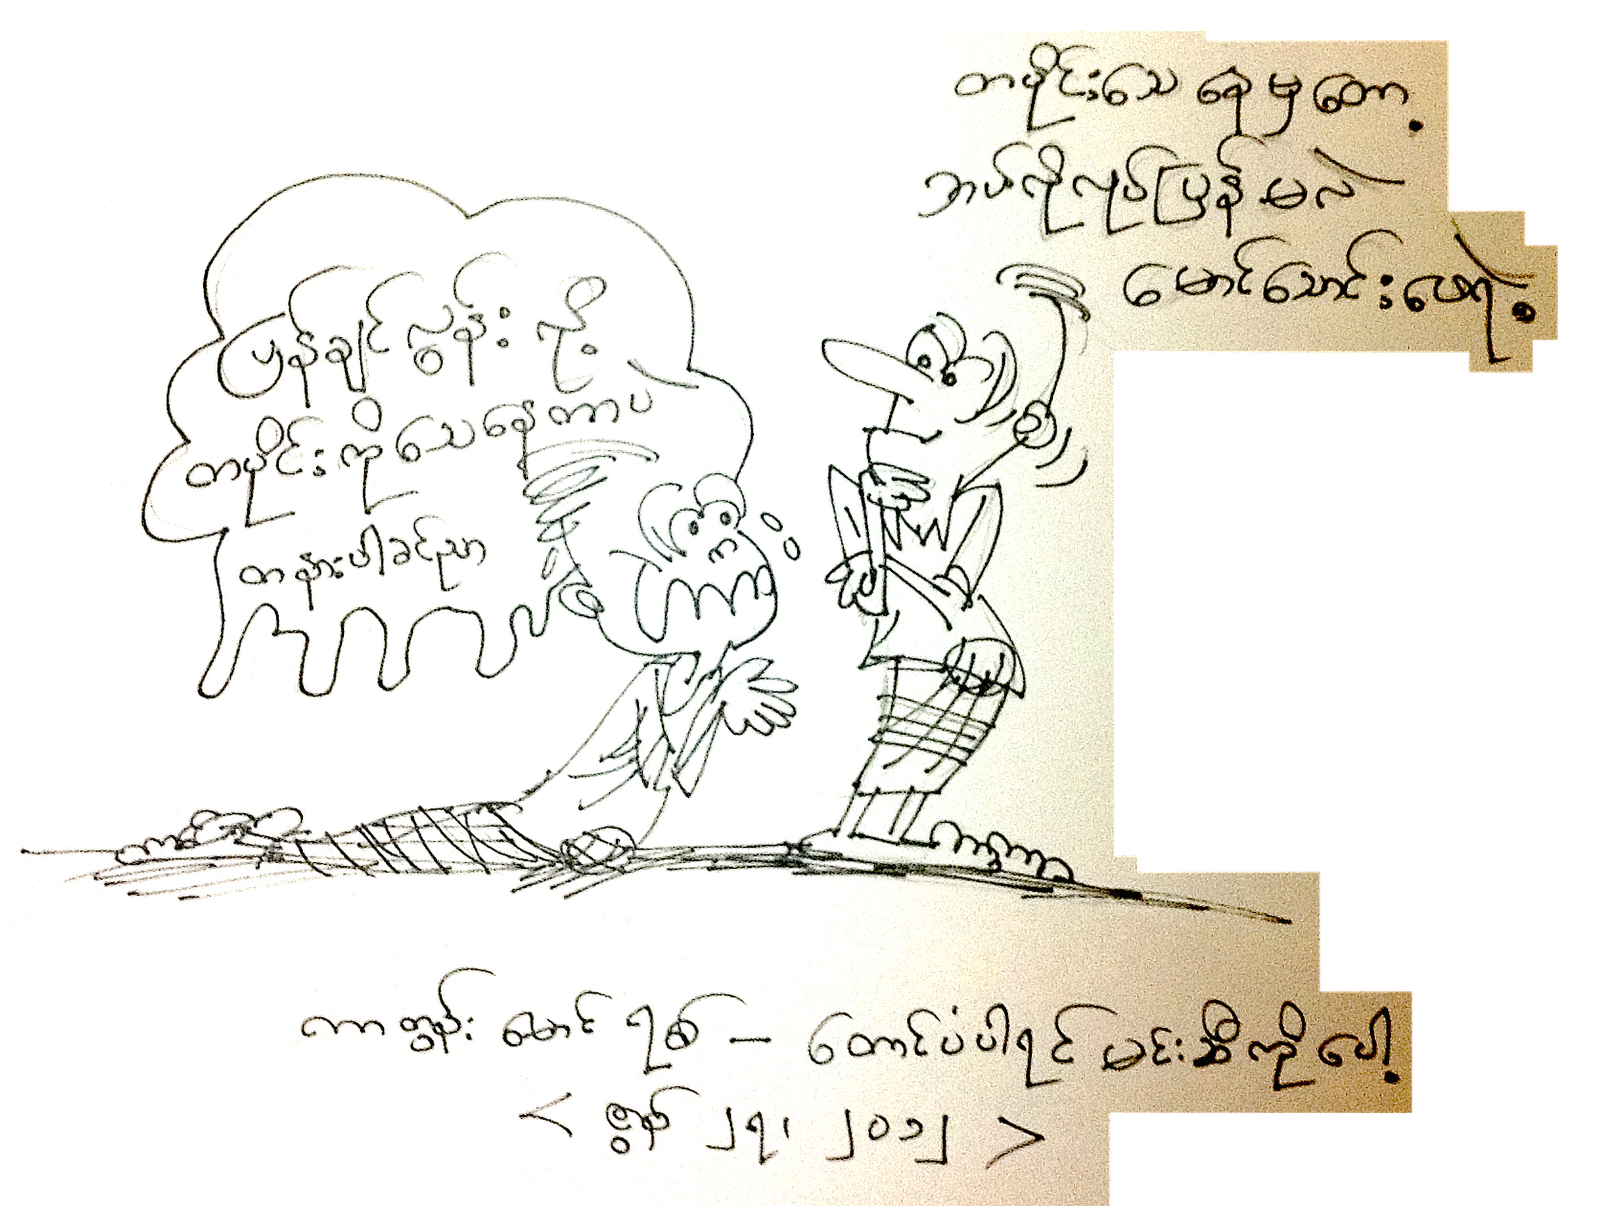 တပိုင်းသေ နေမှ တော့
ဘယ်လိုလုပ်ပြန် မလဲ
မောင်သောင်းဖေရဲ့
ပြန်ချင်လွန်း လို့
တပိုင်းကို သေနေတာပ
တနားပါခင်ညာ
ကာတွန်း မောင်ရစ် – တောင်းပံပါရင် မင်းဆီကိုပေါ့
< ဇွန် ၂၇၊ ၂၀၁၂ >